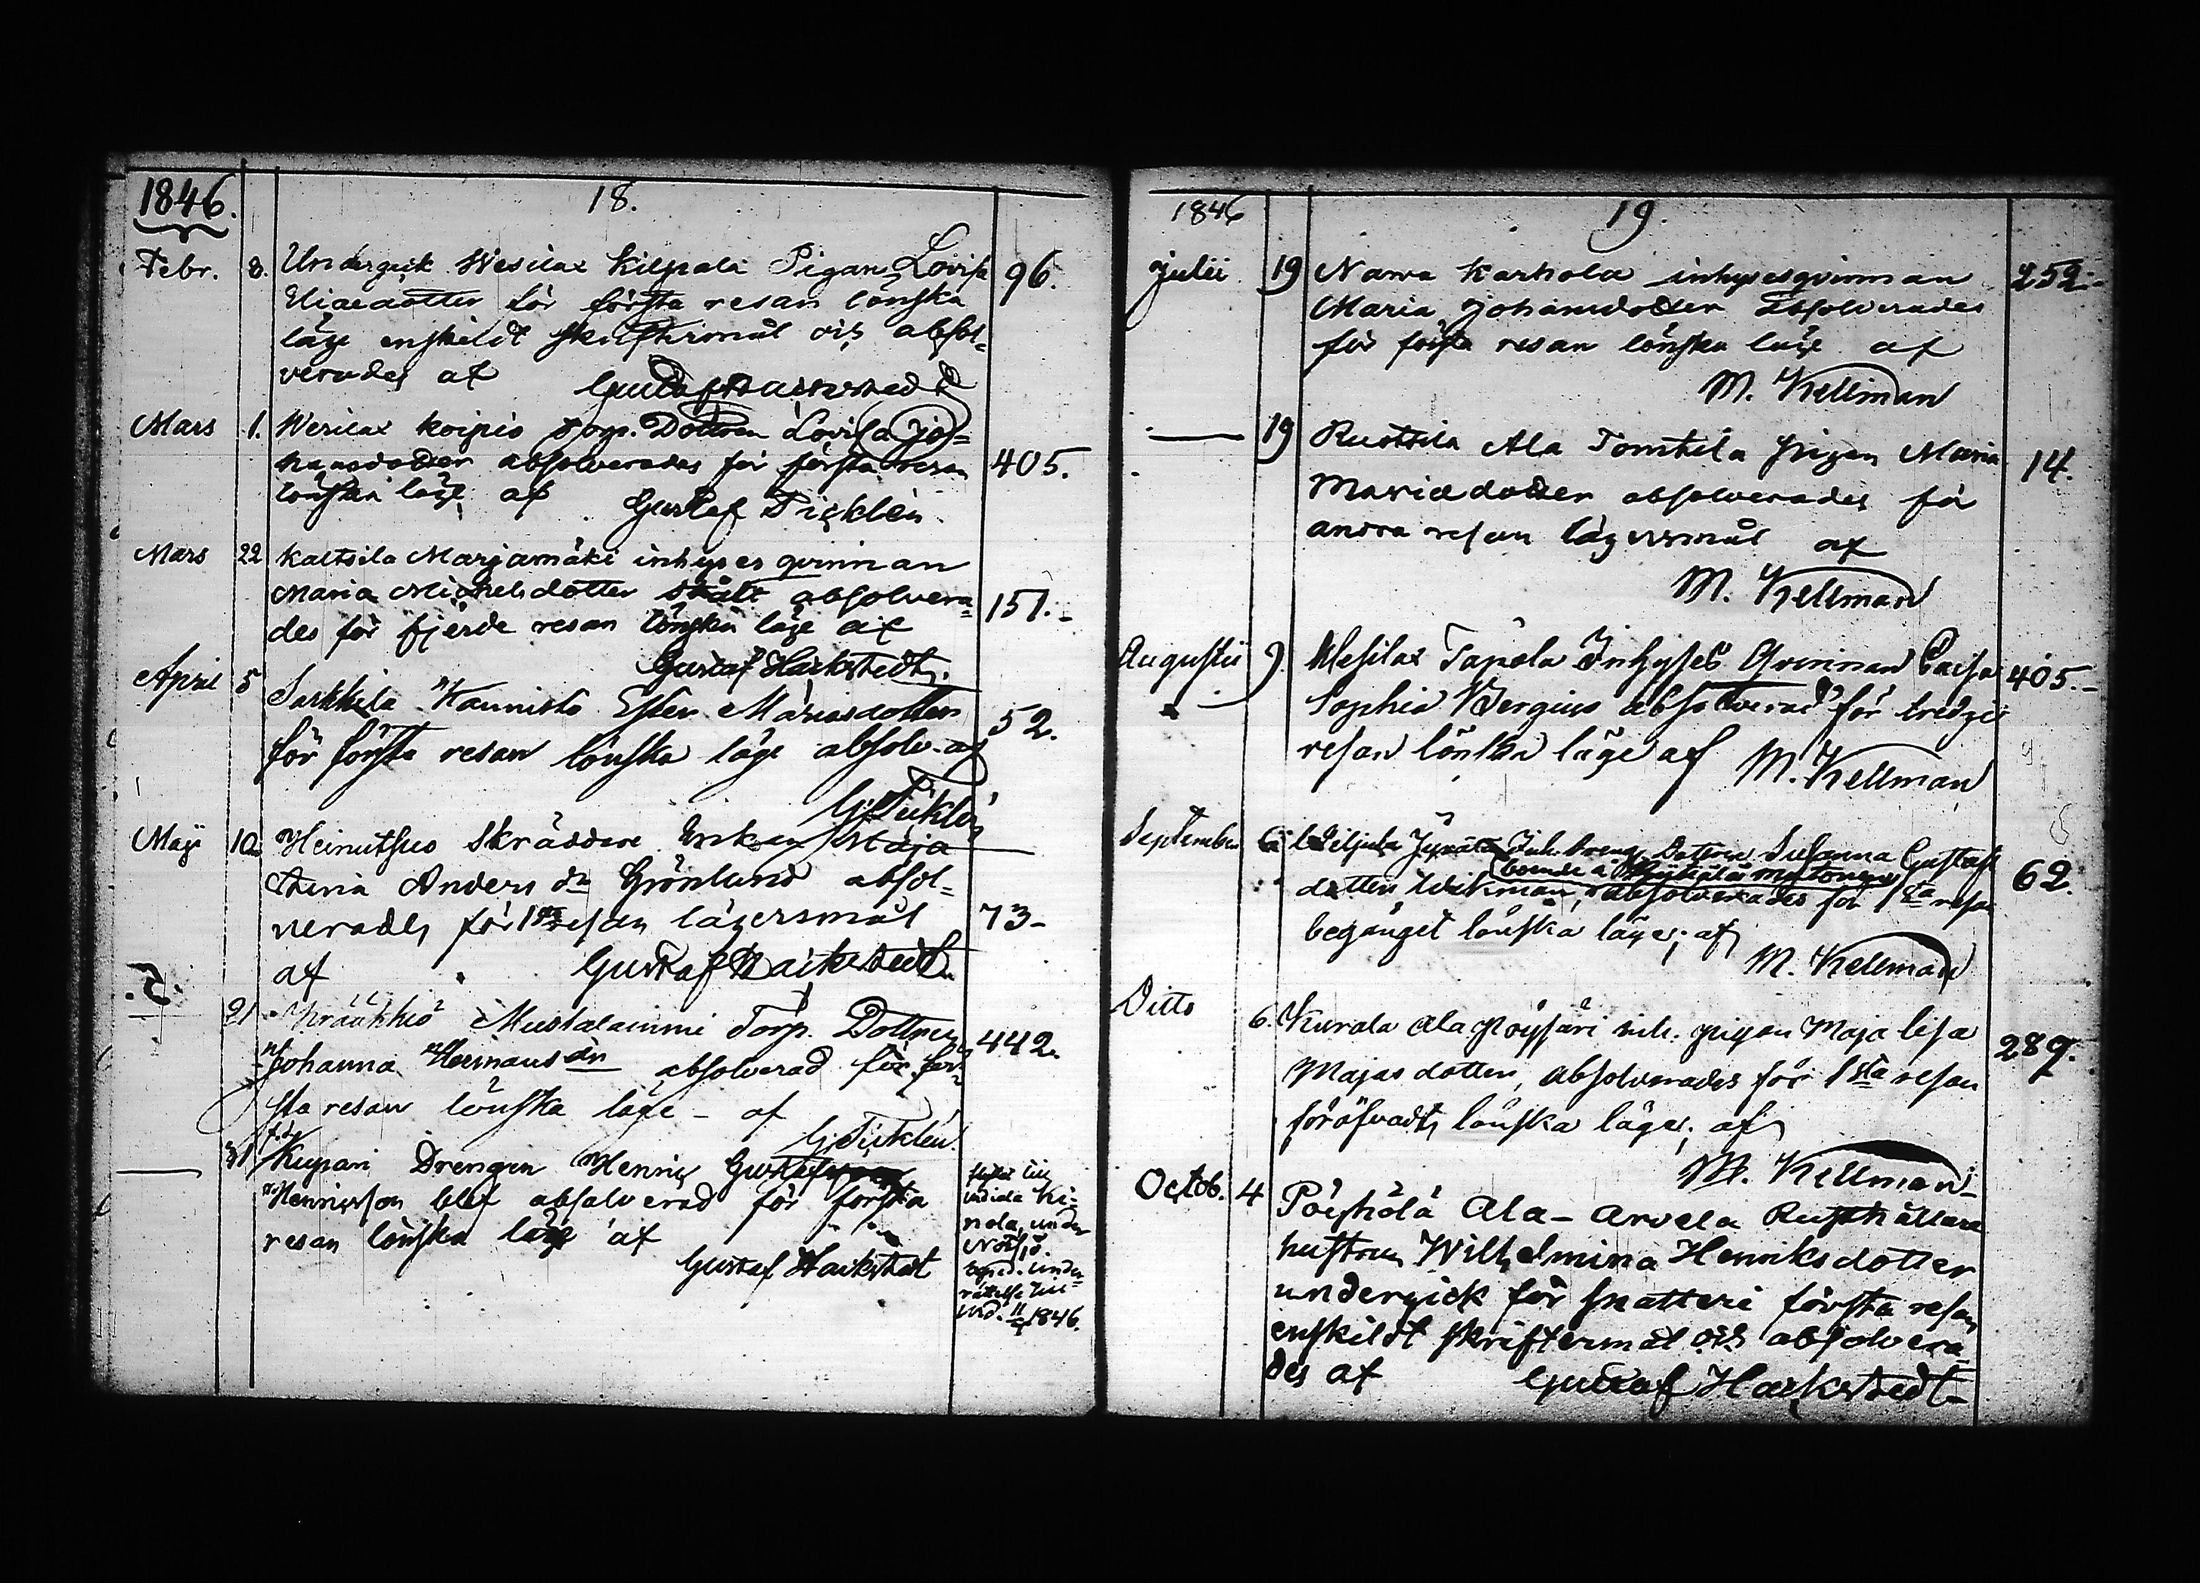 1846.
18.
Febr. 8. Undergick Wesilax Kilpala Pigan Lovisa 96.
Eliaedotter för första resan lönska
läge enskildt skriftermål och absol=
verades af Gustaf Hackstedt
Mars 1. Wesilax Koipio torp. Dottren Lovisa Jo=
hansdotter absolverades för första resan 405.
lönska läge af Gustaf Ticklén
Mars 22 Kaltsila Marjamäki inhyses qvinnan
Maria Michelsdotter absolvera= 151.-
des för fjerde resan lönska läge af
Gustaf Hackstedt.
April 5 Sarkkila Hannisto Ester Mariasdotter 52.
för första resan lönska läge absolv. af
G. Ticklén
Maji 10 Heinuthuo Skräddare Enkan Maja
Anders dr Grönlund absol=
verades för 1sta resan lägersmål 73-
af Gustaf Hackstedt.
21 Krääkkiö Mustalammi Torp. Dottren 442.
Johanna Hermans dr absolverad för för=
sta resan lönska läge - af
G. Ticklén.
31 Kupari Drengen Henric
Henricsson blef absolverad för första
resan lönska läge af
Gustaf Hackstedt
till
Ki=
nola, under
exped. under=
rättelse till
1846.
1846
19.
Julii 19 Narva Karhola inhysesqvinnan 252-
Maria Johansdotter absolverades
för första resan lönska läge af
M. Kellman
19 Ruottila Ala Tomtila pigan Maria 14.
Mariaedotter absolverades för
andra resan lägersmål af
M. Kellman
Augusti 9. Wesilax Tapola Inhyses Qvinnan Caisa 405.-
Sophia Bergius absolverad för tredje
resan lönska läge af M. Kellman
September 6 Dottren Susanna Gustafs
boende å
dotter Wikman, absolverades för 1sta resan 62.
begånget lönska läge; af
M. Kellman
Ditto 6. Kurala Ala Pöyssäri inh. pigan Maja Lisa 289.
Majas dotter, absolverades för 1sta resan
föröfvadt lönska läge; af
M. Kellman
Octob. 4 Pöyhölä Ala-Arvela Rusthållare
hustrun Wilhelmina Henriksdotter
undergick för snatteri första resan
enskildt skriftermål och absolvera=
des af Gustaf Hackstedt